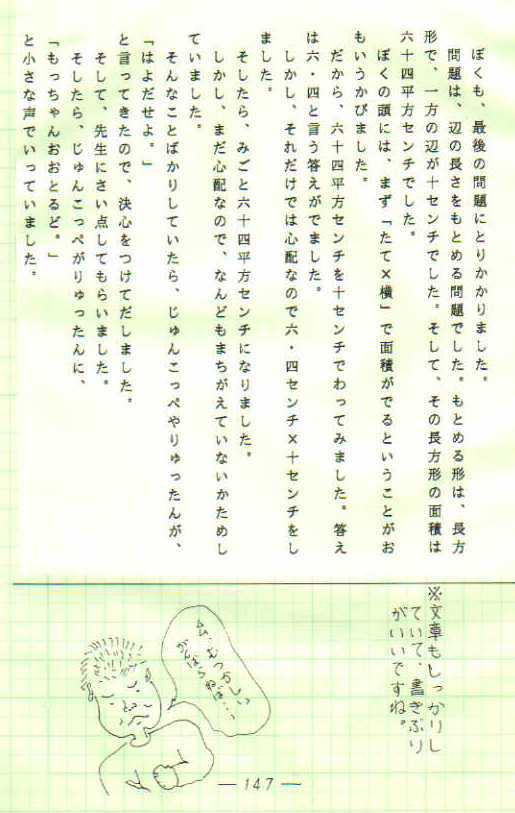 ぼくも、最後の問題にとりかかりました。
問題は、辺の長さをもとめる問題でした。もとめる形は、長方
形で、一方の辺が十センチでした。そして、その長方形の面積は
六十四平方センチでした。
ぼくの頭には、まず「たて×横」で面積がでるということがお
もいうかびました。
だから、六十四平方センチを十センチでわってみました。答え
は六・四と言う答えがでました。
しかし、それだけでは心配なので六・四センチ×十センチをし
ました。
そしたら、みごと六十四平方センチになりました。
しかし、まだ心配なので、なんどもまちがえていないかためし
ていました。
そんなことばかりしていたら、じゅんこっぺやりゅったんが、
「はよだせよ。」
と言ってきたので、決心をつけてだしました。
そして、先生にさい点してもらいました。
そしたら、じゅんこっぺがりゅったんに、
「もっちゃんおおとるど。」
と小さな声でいっていました。
※文章もしっかりし
ていて、書きぶり
がいいですね。
ム、むつかしい
がんばらねば…
— 147 —